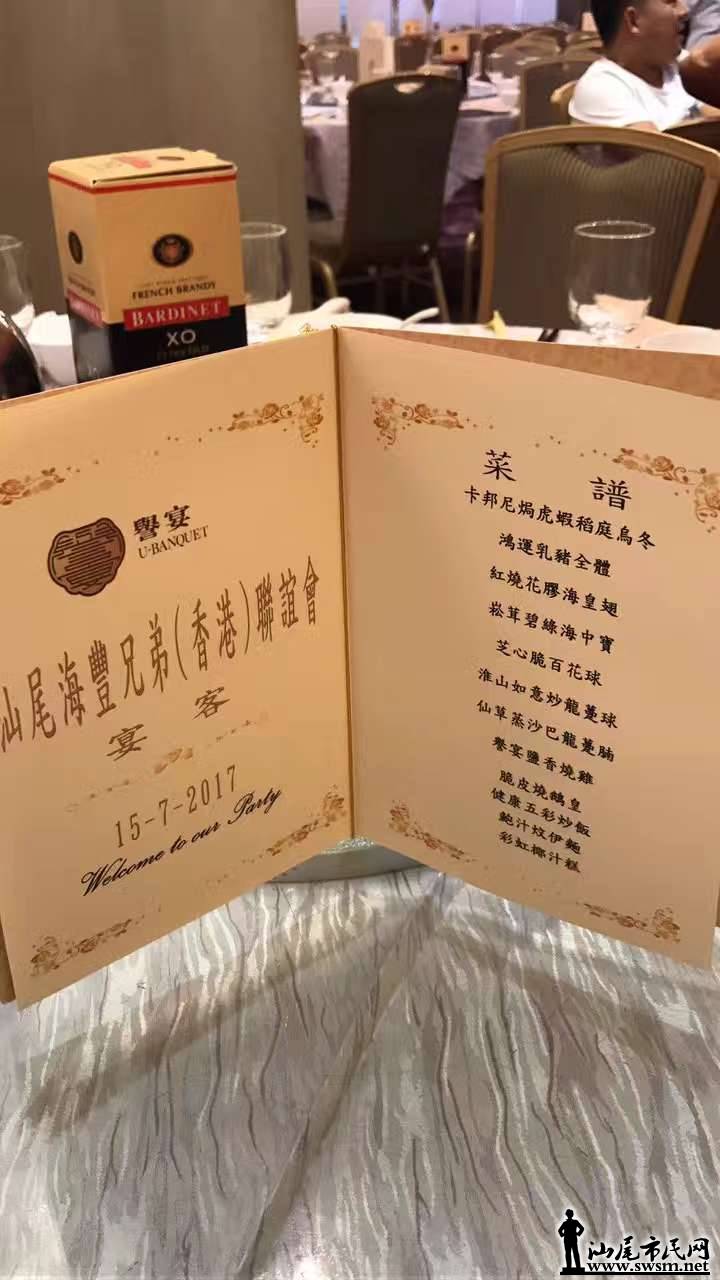 FRENCH BRANDY
BARDINET
XO
譽宴
U-BANQUET
汕尾海豐兄弟(香港)聯誼會
宴 客
15-7-2017
Welcome to our Party
菜 譜
卡邦尼焗虎蝦稻庭烏冬
鴻運乳豬全體
紅燒花膠海皇翅
崧茸碧綠海中寶
芝心脆百花球
淮山如意炒龍躉球
仙草蒸沙巴龍躉腩
譽宴鹽香燒雞
脆皮燒鵝皇
健康五彩炒飯
鮑汁炆伊麵
彩虹椰汁糕
汕尾市民网
www.swsm.net